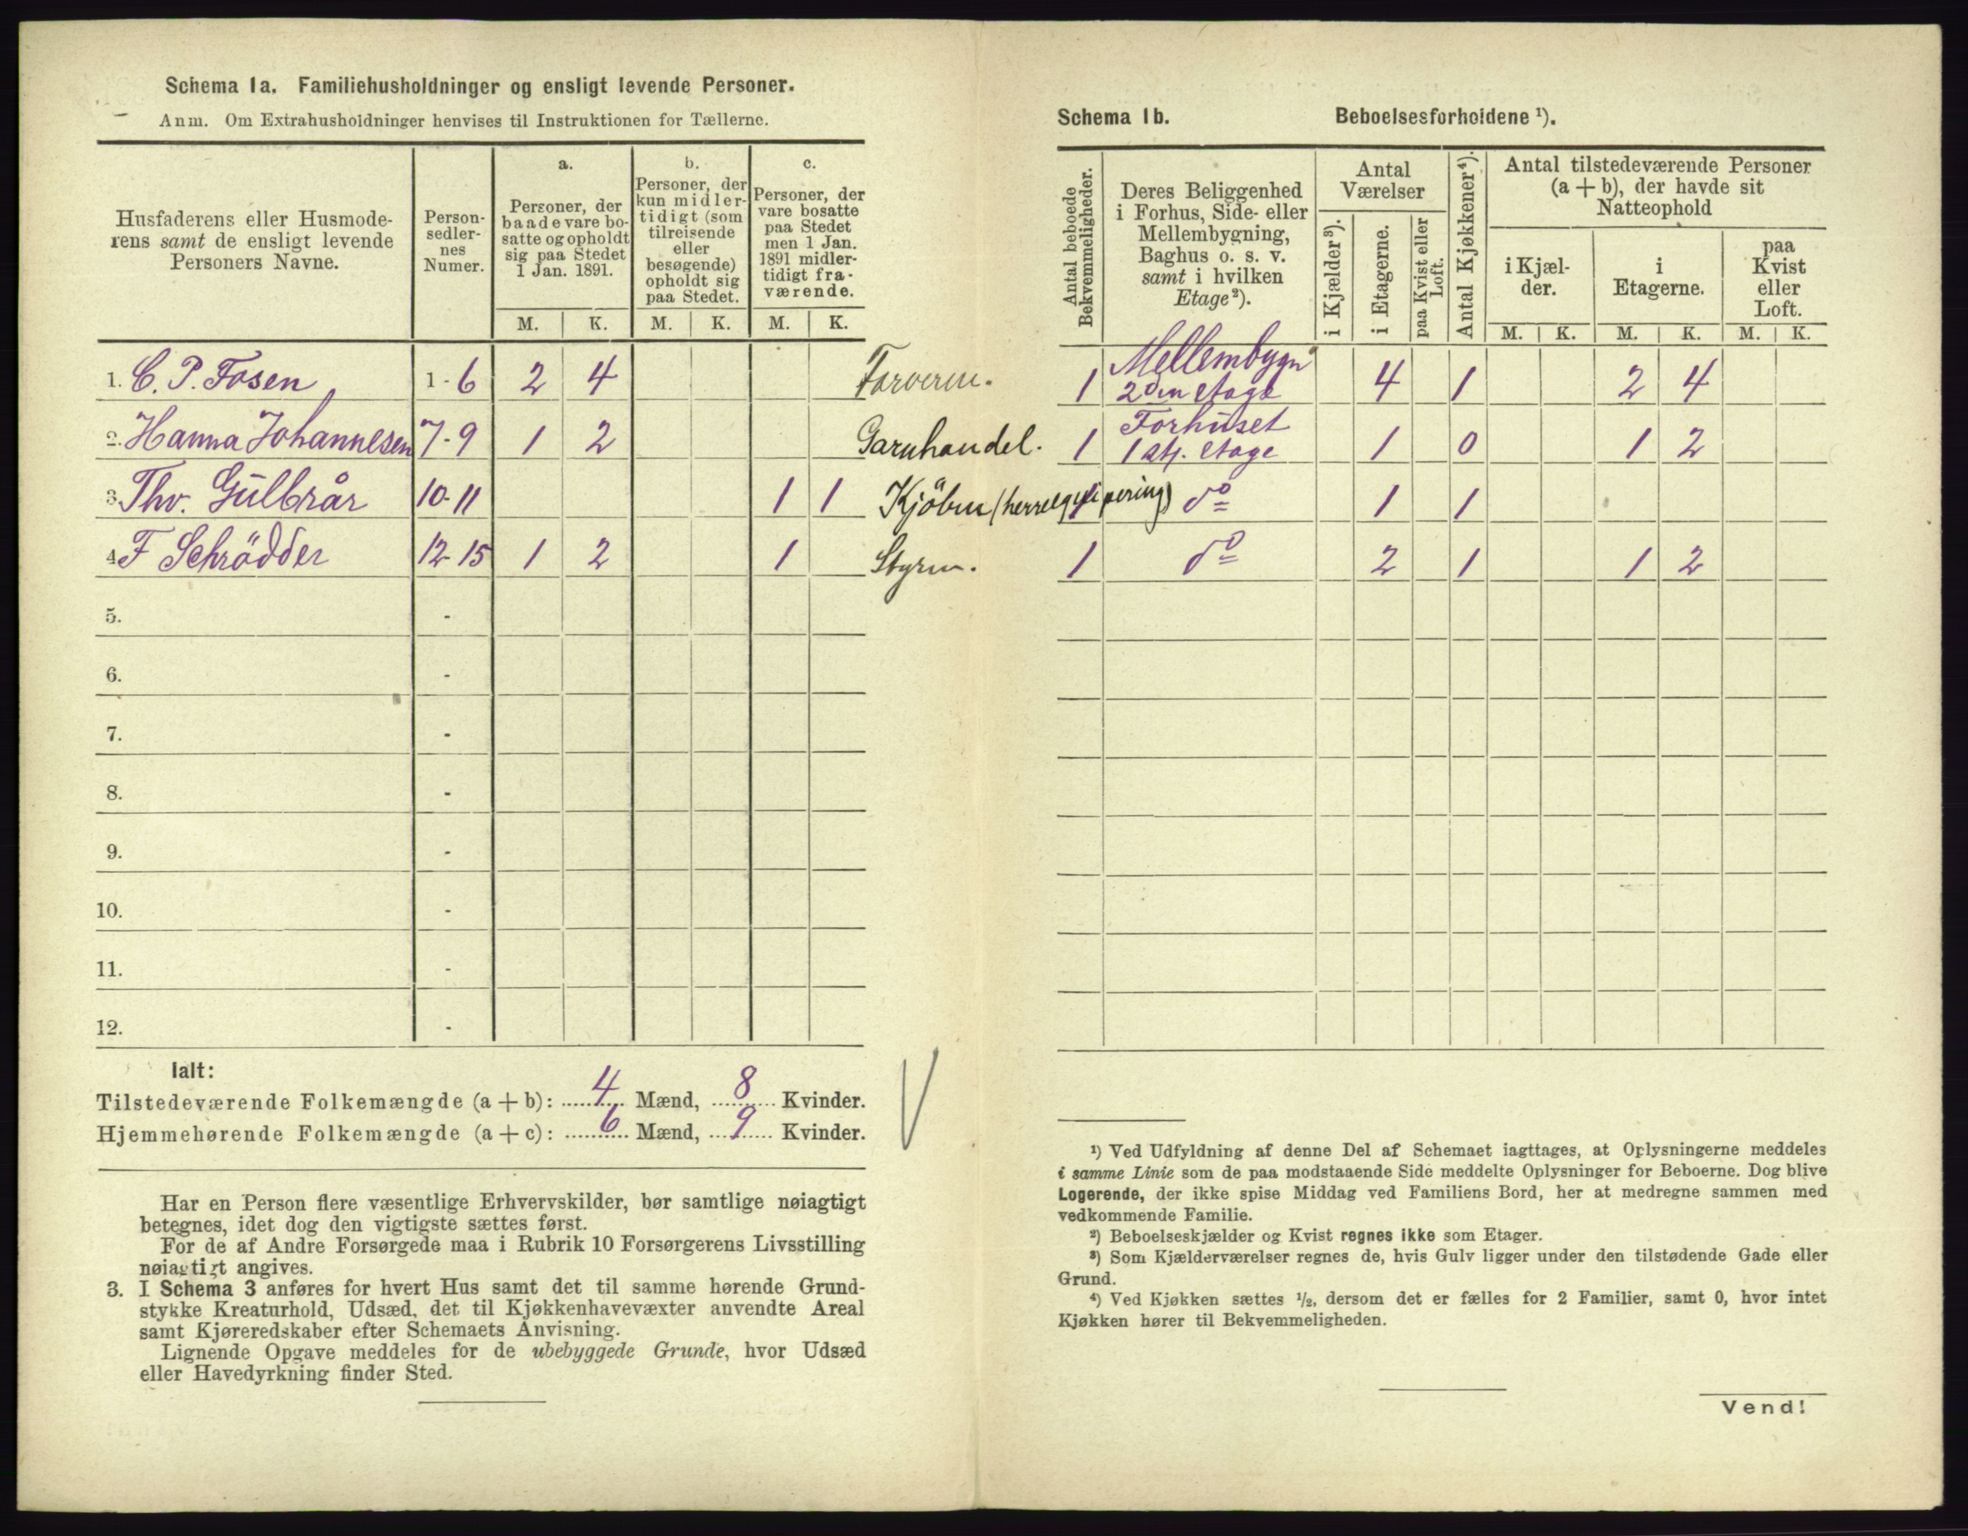 Schema 1a. Familiehusholdninger og ensligt levende Personer.
Anm. Om Extrahusholdninger henvises til Instruktionen for Tællerne.
Husfaderens eller Husmoderens samt de ensligt levende Personers Navne.
Personsedlernes Numer.
a. Personer, der baade vare bosatte og opholdt sig paa Stedet 1 Jan. 1891.
b. Personer, der kun midlertidigt (som tilreisende eller besøgende) opholdt sig paa Stedet.
c. Personer, der vare bosatte paa Stedet men 1 Jan. 1891 midlertidigt fraværende.
M. K. M. K. M. K.
1. C. P. Fosen 1-6 2 4 Farverm.
2. Hanna Johannesen 7-9 1 2 Garnhandel.
3. Thv. Gülbrår 10-11 1 1 Kjöbm (herreequipering)
4. F Schrödder 12-15 1 2 1 Styrm.
5. -
6. -
7. -
8. -
9. -
10. -
11. -
12. -
Ialt:
Tilstedeværende Folkemængde (a + b): 4 Mænd, 8 Kvinder.
Hjemmehørende Folkemængde (a + c): 6 Mænd, 9 Kvinder.
Har en Person flere væsentlige Erhvervskilder, bør samtlige nøiagtigt
betegnes, idet dog den vigtigste sættes først.
For de af Andre Forsørgede maa i Rubrik 10 Forsørgerens Livsstilling
nøiagtigt angives.
3. I Schema 3 anføres for hvert Hus samt det til samme hørende Grund-
stykke Kreaturhold, Udsæd, det til Kjøkkenhavevæxter anvendte Areal
samt Kjøreredskaber efter Schemaets Anvisning.
Lignende Opgave meddeles for de ubebyggede Grunde, hvor Udsæd
eller Havedyrkning finder Sted.
Schema 1b. Beboelsesforholdene ¹).
Antal beboede Bekvemmeligheder.
Deres Beliggenhed i Forhus, Side- eller Mellembygning, Baghus o. s. v. samt i hvilken Etage ²).
Antal Værelser
i Kjælder ³).
i Etagerne.
paa Kvist eller Loft.
Antal Kjøkkener ⁴).
Antal tilstedeværende Personer (a + b), der havde sit Natteophold
i Kjælder.
i Etagerne.
paa Kvist eller Loft.
M. K. M. K. M. K.
1 Mellembygn 2den etage 4 1 2 4
1 Forhuset 1ste etage 1 0 1 2
1 do 1 1
1 do 2 1 1 2
¹) Ved Udfyldning af denne Del af Schemaet iagttages, at Oplysningerne meddeles
i samme Linie som de paa modstaaende Side meddelte Oplysninger for Beboerne. Dog blive
Logerende, der ikke spise Middag ved Familiens Bord, her at medregne sammen med
vedkommende Familie.
²) Beboelseskjælder og Kvist regnes ikke som Etager.
³) Som Kjælderværelser regnes de, hvis Gulv ligger under den tilstødende Gade eller
Grund.
⁴) Ved Kjøkken sættes ½, dersom det er fælles for 2 Familier, samt 0, hvor intet
Kjøkken hører til Bekvemmeligheden.
Vend!